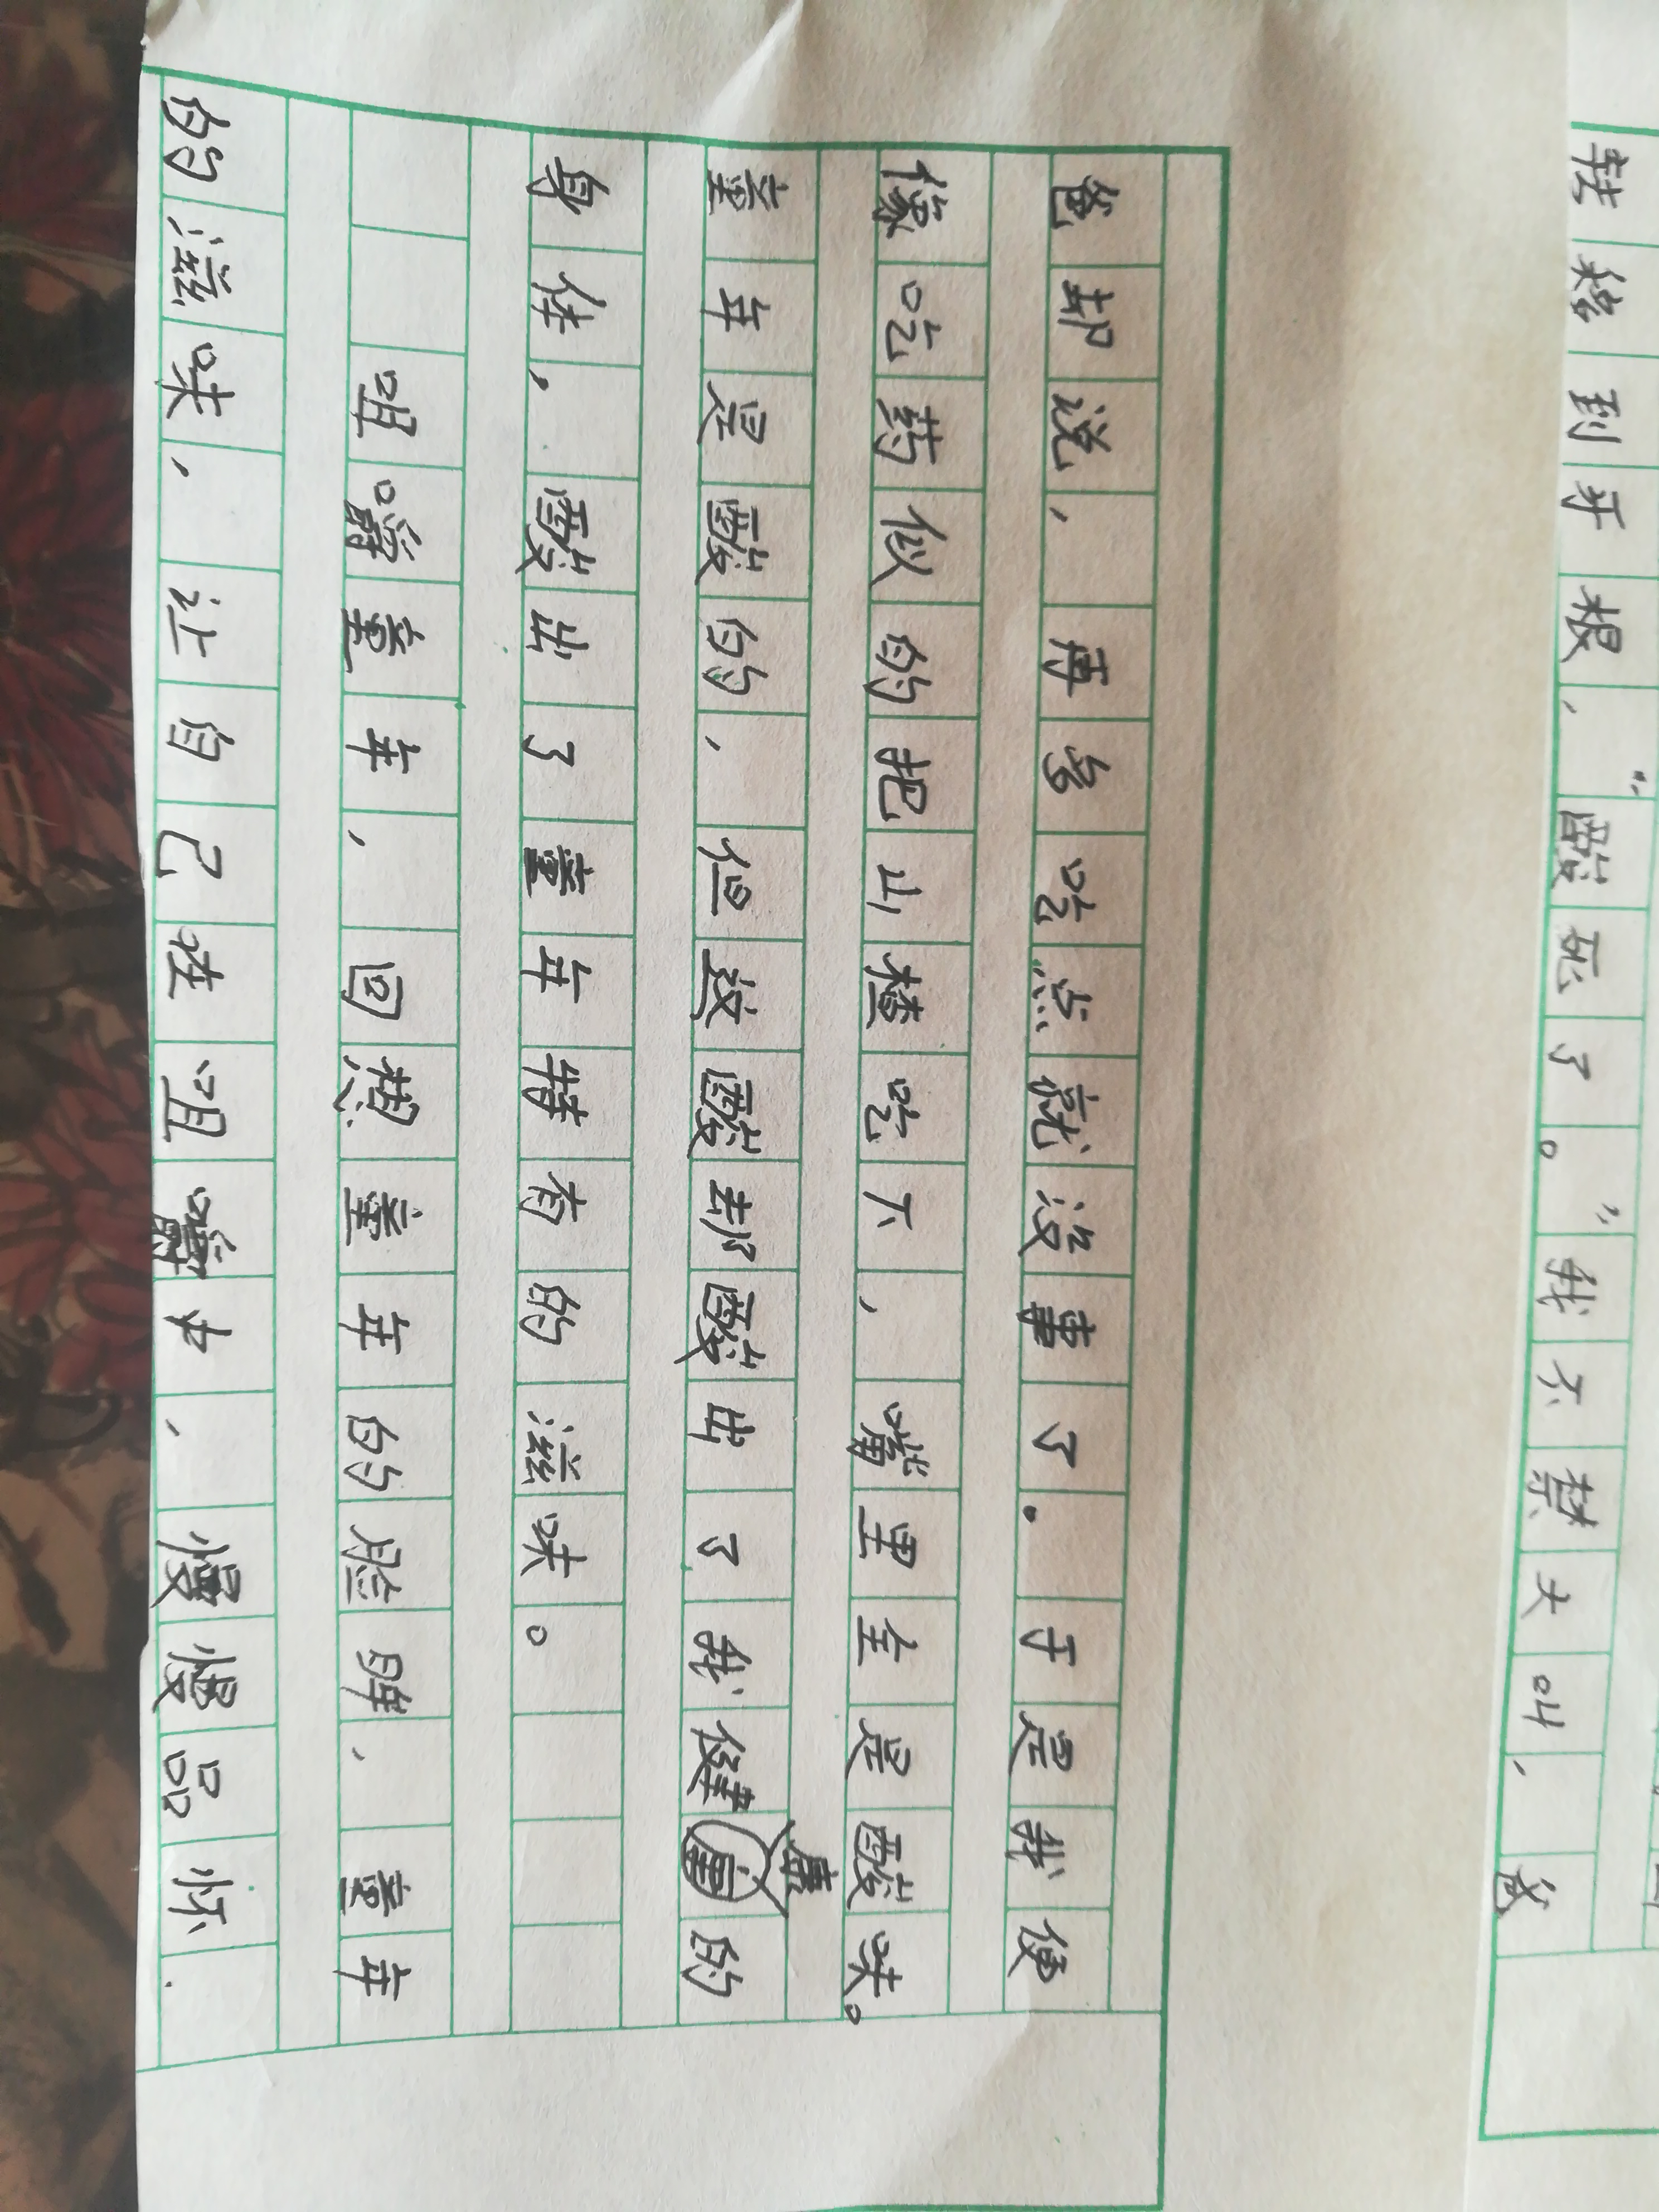 转移到牙根，“酸死了。”我不禁大叫，爸
爸却说，再多吃点就没事了.于是我便
像吃药似的把山楂吃下，嘴里全是酸味。
童年是酸的，但这酸却酸出了我健康的
身体，酸出了童年特有的滋味。
咀嚼童年，回想童年的脸畔，童年
的滋味，让自己在咀嚼中，慢慢品怀.